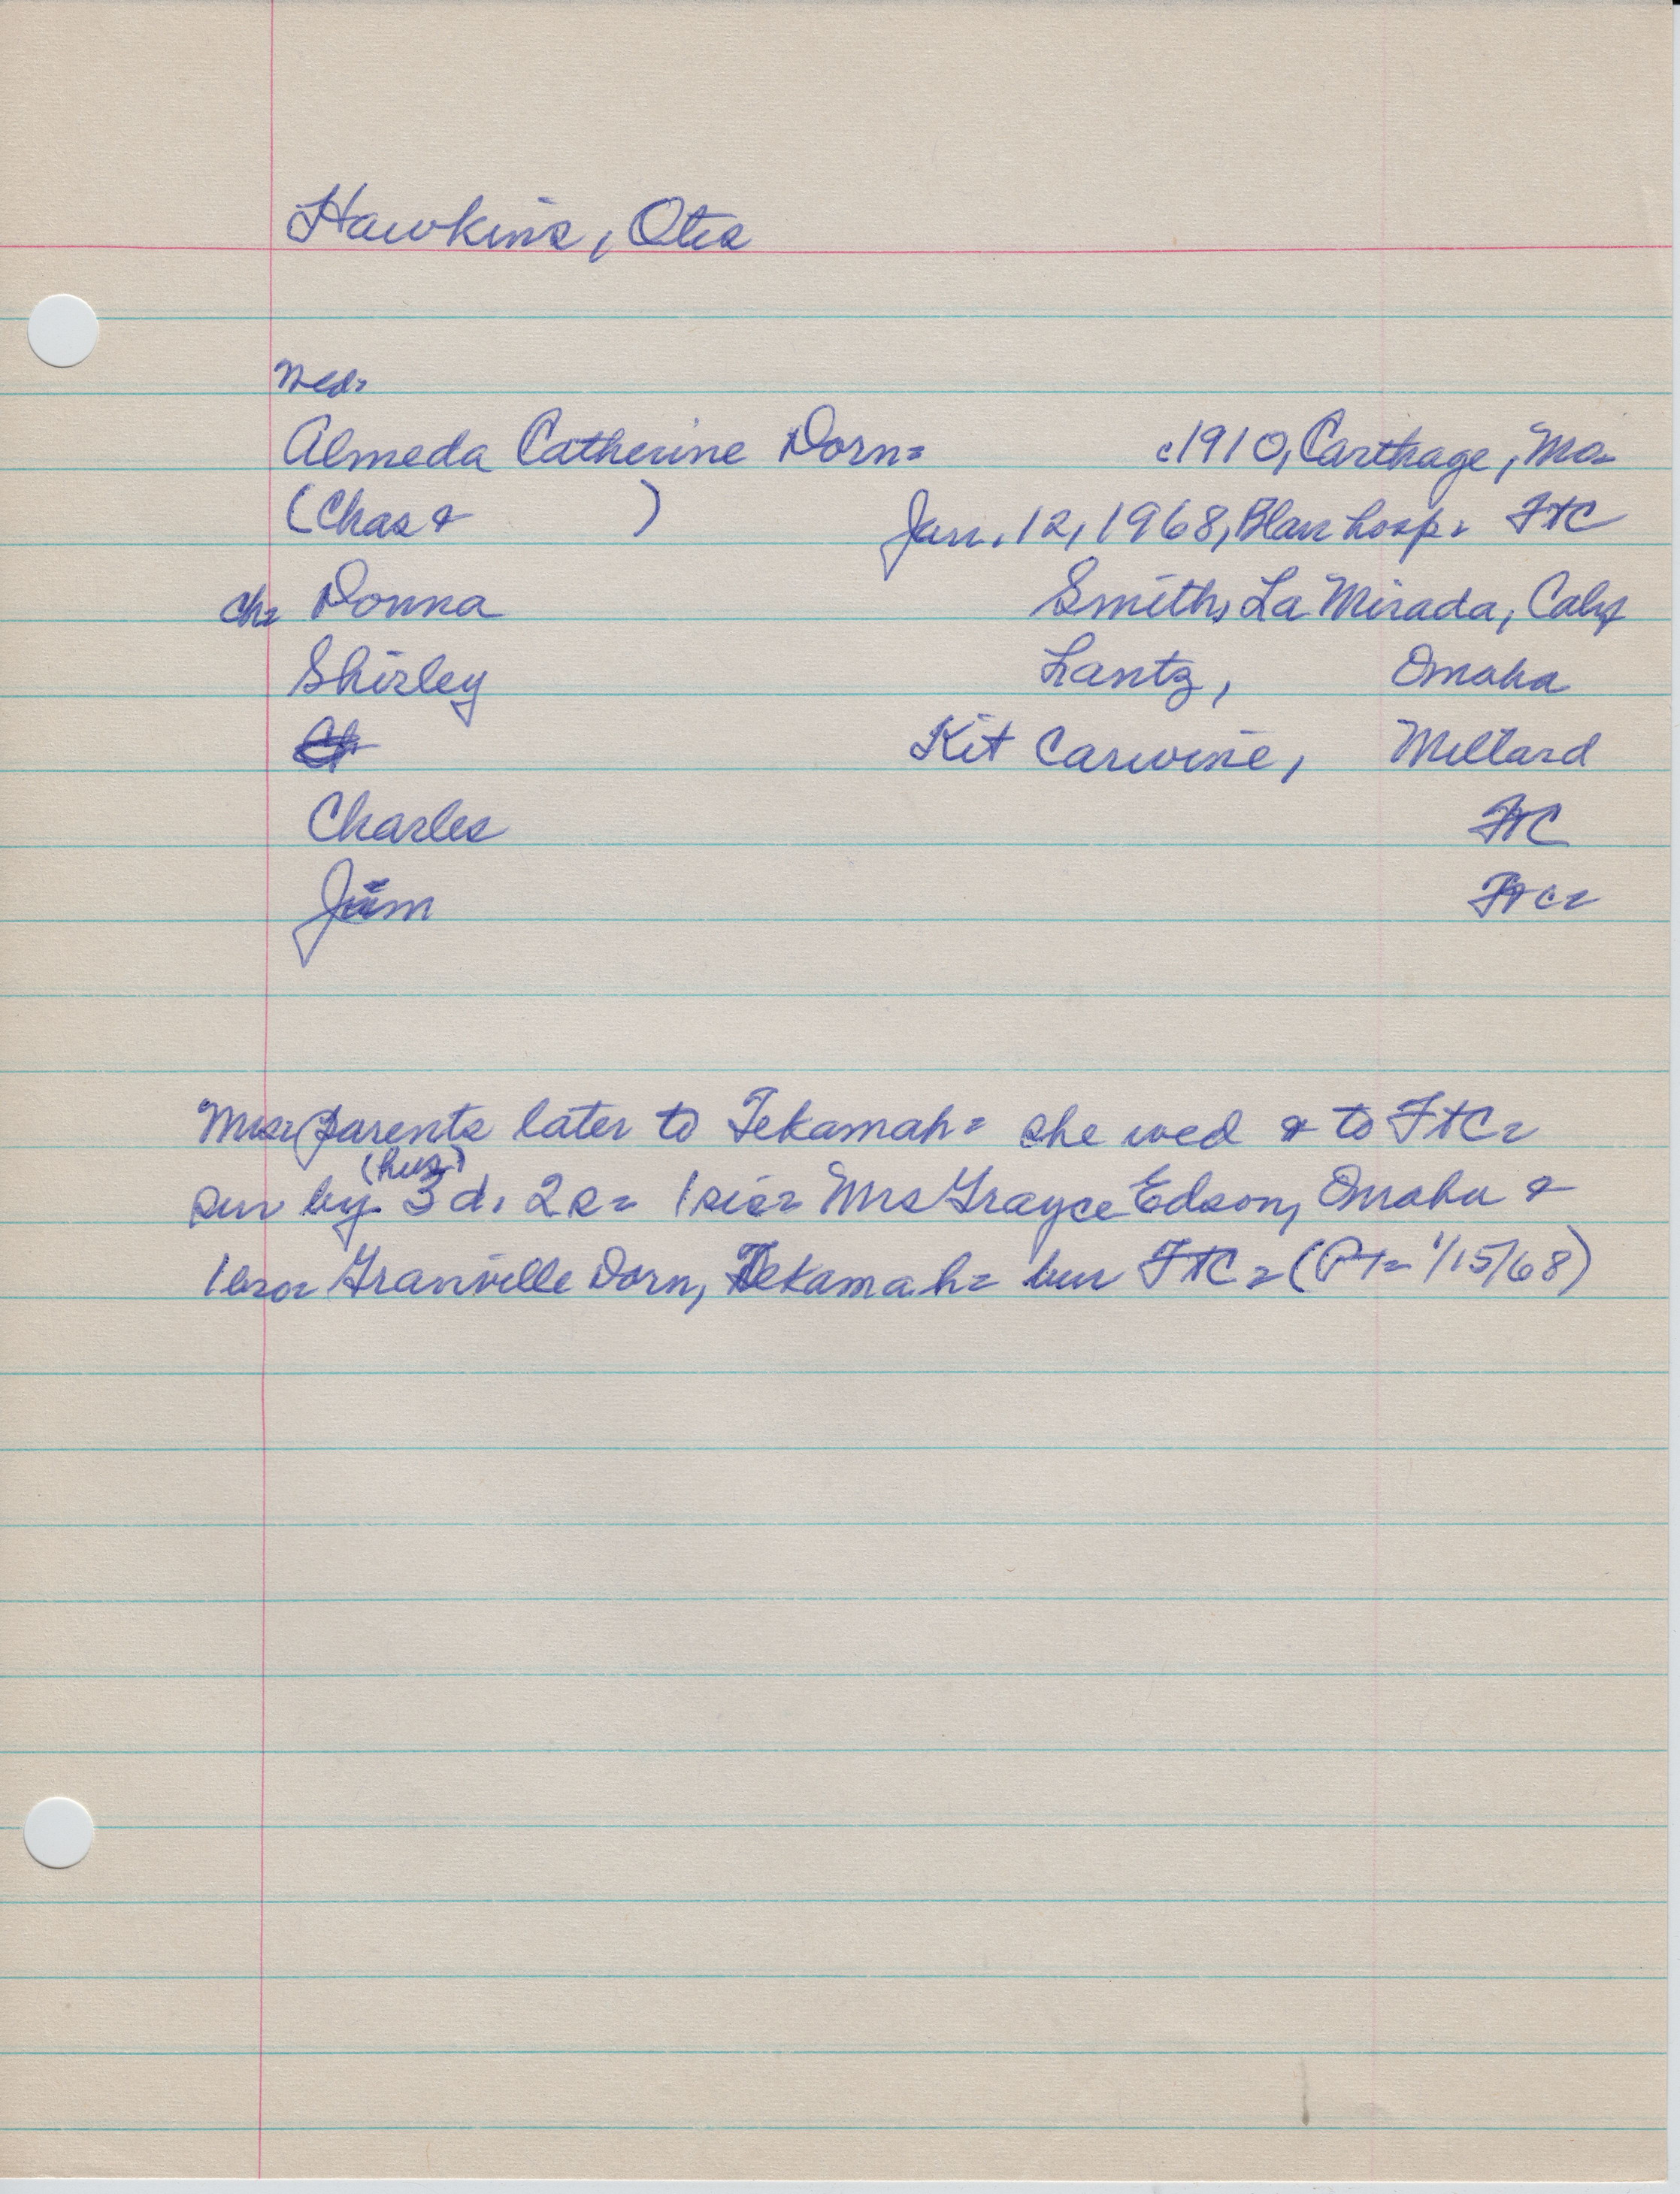 Hawkins, Otis
Wed.
Almeda Catherine Dorn= c1910, Carthage, Mo=
(Chas & ) Jan. 12, 1968, Blair hosp= FtC
ch= Donna Smith, La Mirada, Calif
Shirley Lantz, Omaha
Kit Carwine, Millard
Charles FtC
Jim FtC=
Mrs= parents later to Tekamah= she wed & to FtC=
(hus)
sur by 3 d. 2 s= 1 sis= Mrs Grayce Edson, Omaha &
1 bro= Granville Dorn, Tekamah= bur FtC= (PT= 1/15/68)